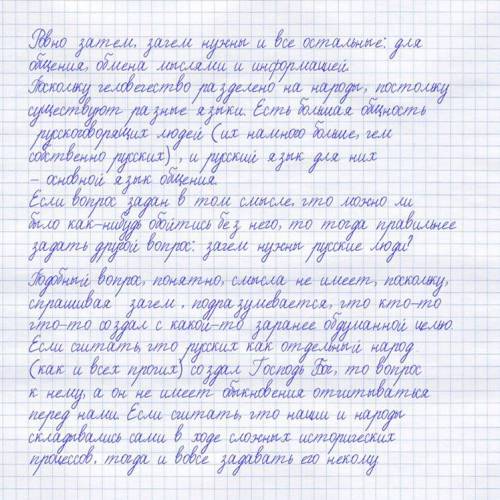 Ровно затем, зачем нужны и все остальные: для
общения, обмена мыслями и информацией.
Поскольку человечество разделено на народы, постольку
существуют разные языки. Есть большая общность
русскоговорящих людей (их намного больше, чем
собственно русских) , и русский язык для них
– основной язык общения.
Если вопрос задан в том смысле, что можно ли
было как-нибудь обойтись без него, то тогда правильнее
задать другой вопрос: зачем нужны русские люди?
Подобный вопрос, понятно, смысла не имеет, поскольку,
спрашивая зачем , подразумевается, что кто-то
что-то создал с какой-то заранее обдуманной целью.
Если считать, что русских как отдельный народ
(как и всех прочих) создал Господь Бог, то вопрос
к нему, а он не имеет обыкновения отчитываться
перед нами. Если считать, что нации и народы
складывались сами в ходе сложных исторических
процессов, тогда и вовсе задавать его некому